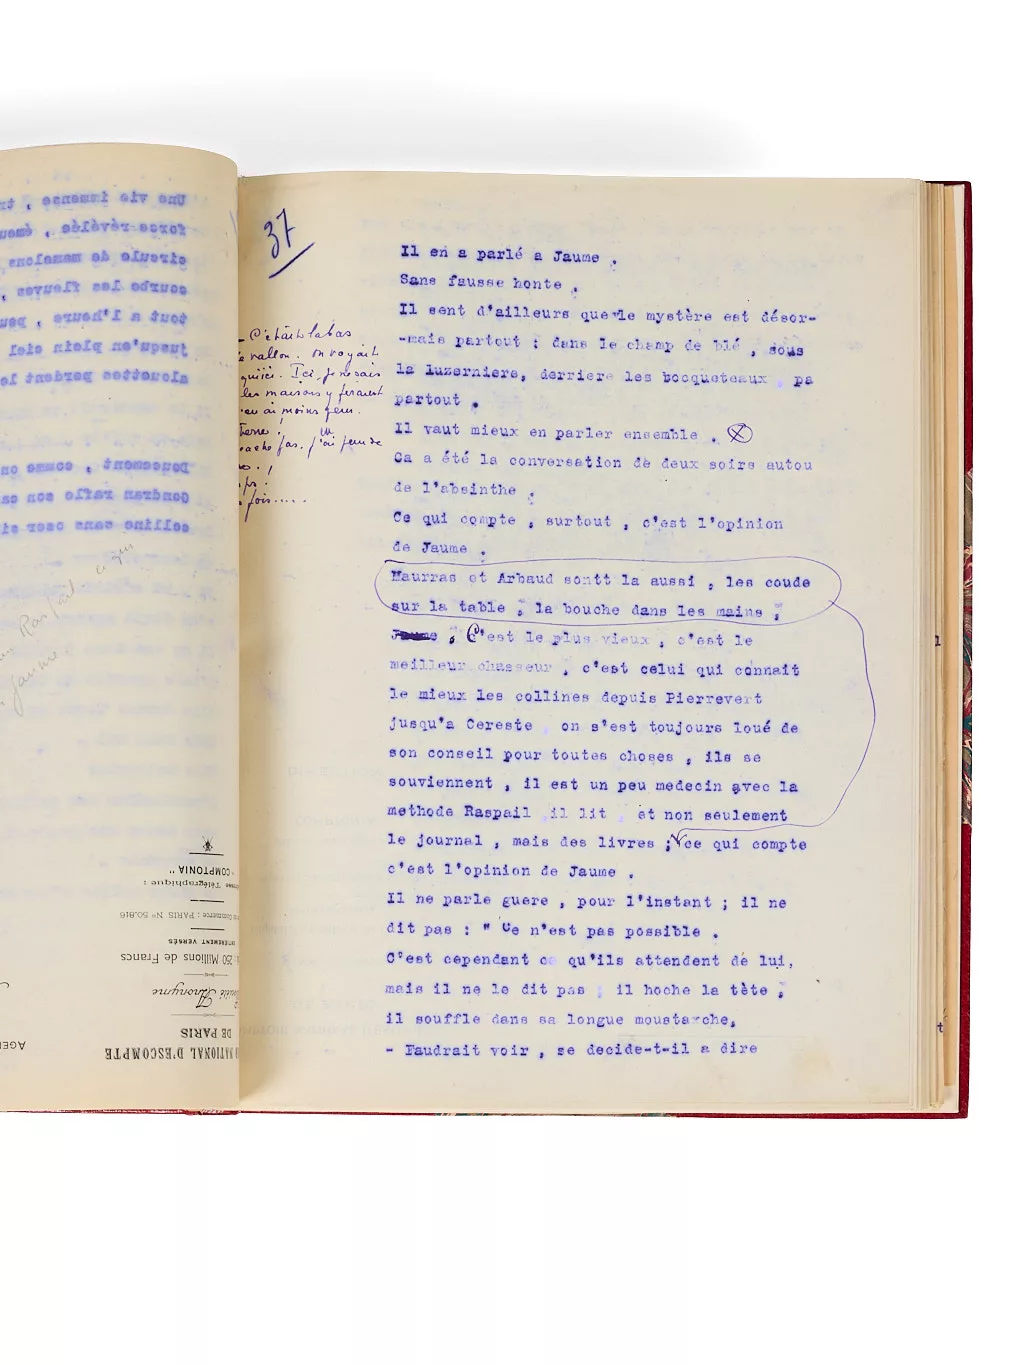 37
- C'était labas
vallon. on voyait
Ici, je sais
les maisons y feraient
moins peur.
pas, j'ai peur de
fois....
Il en a parlé a Jaume .
Sans fausse honte .
Il sent d'ailleurs que le mystère est désor-
-mais partout : dans le champ de blé , sous
la luzerniere, derriere les bocqueteaux , pa
partout .
Il vaut mieux en parler ensemble .
Ca a été la conversation de deux soirs autou
de l'absinthe .
Ce qui compte , surtout , c'est l'opinion
de Jaume .
Maurras et Arbaud sontt la aussi , les coude
sur la table , la bouche dans les mains ;
Jaume , C'est le plus vieux , c'est le
meilleur chasseur , c'est celui qui connait
le mieux les collines depuis Pierrevert
jusqu'a Cereste , on s'est toujours loué de
son conseil pour toutes choses , ils se
souviennent , il est un peu medecin avec la
methode Raspail , il lit , et non seulement
le journal , mais des livres ; ce qui compte
c'est l'opinion de Jaume .
Il ne parle guere , pour l'instant ; il ne
dit pas : " Ce n'est pas possible .
C'est cependant ce qu'ils attendent de lui,
mais il ne le dit pas , il hoche la tête ,
il souffle dans sa longue moustache,
- Faudrait voir , se decide-t-il a dire
Une vie immense , tr
force révélée , émeu
circule de mamelons
courbe les fleuves ,
tout a l'heure , peu
jusqu'en plein ciel
alouettes perdent le
Doucement , comme on
Gondran rafle son ca
colline sans oser si
Raspail
Jaume
NATIONAL D'ESCOMPTE
DE PARIS
Anonyme
250 Millions de Francs
ENTIEREMENT VERSÉS
Commerce : PARIS Nº 50.816
Télégraphique :
" COMPTONIA "
AGEN
l
t